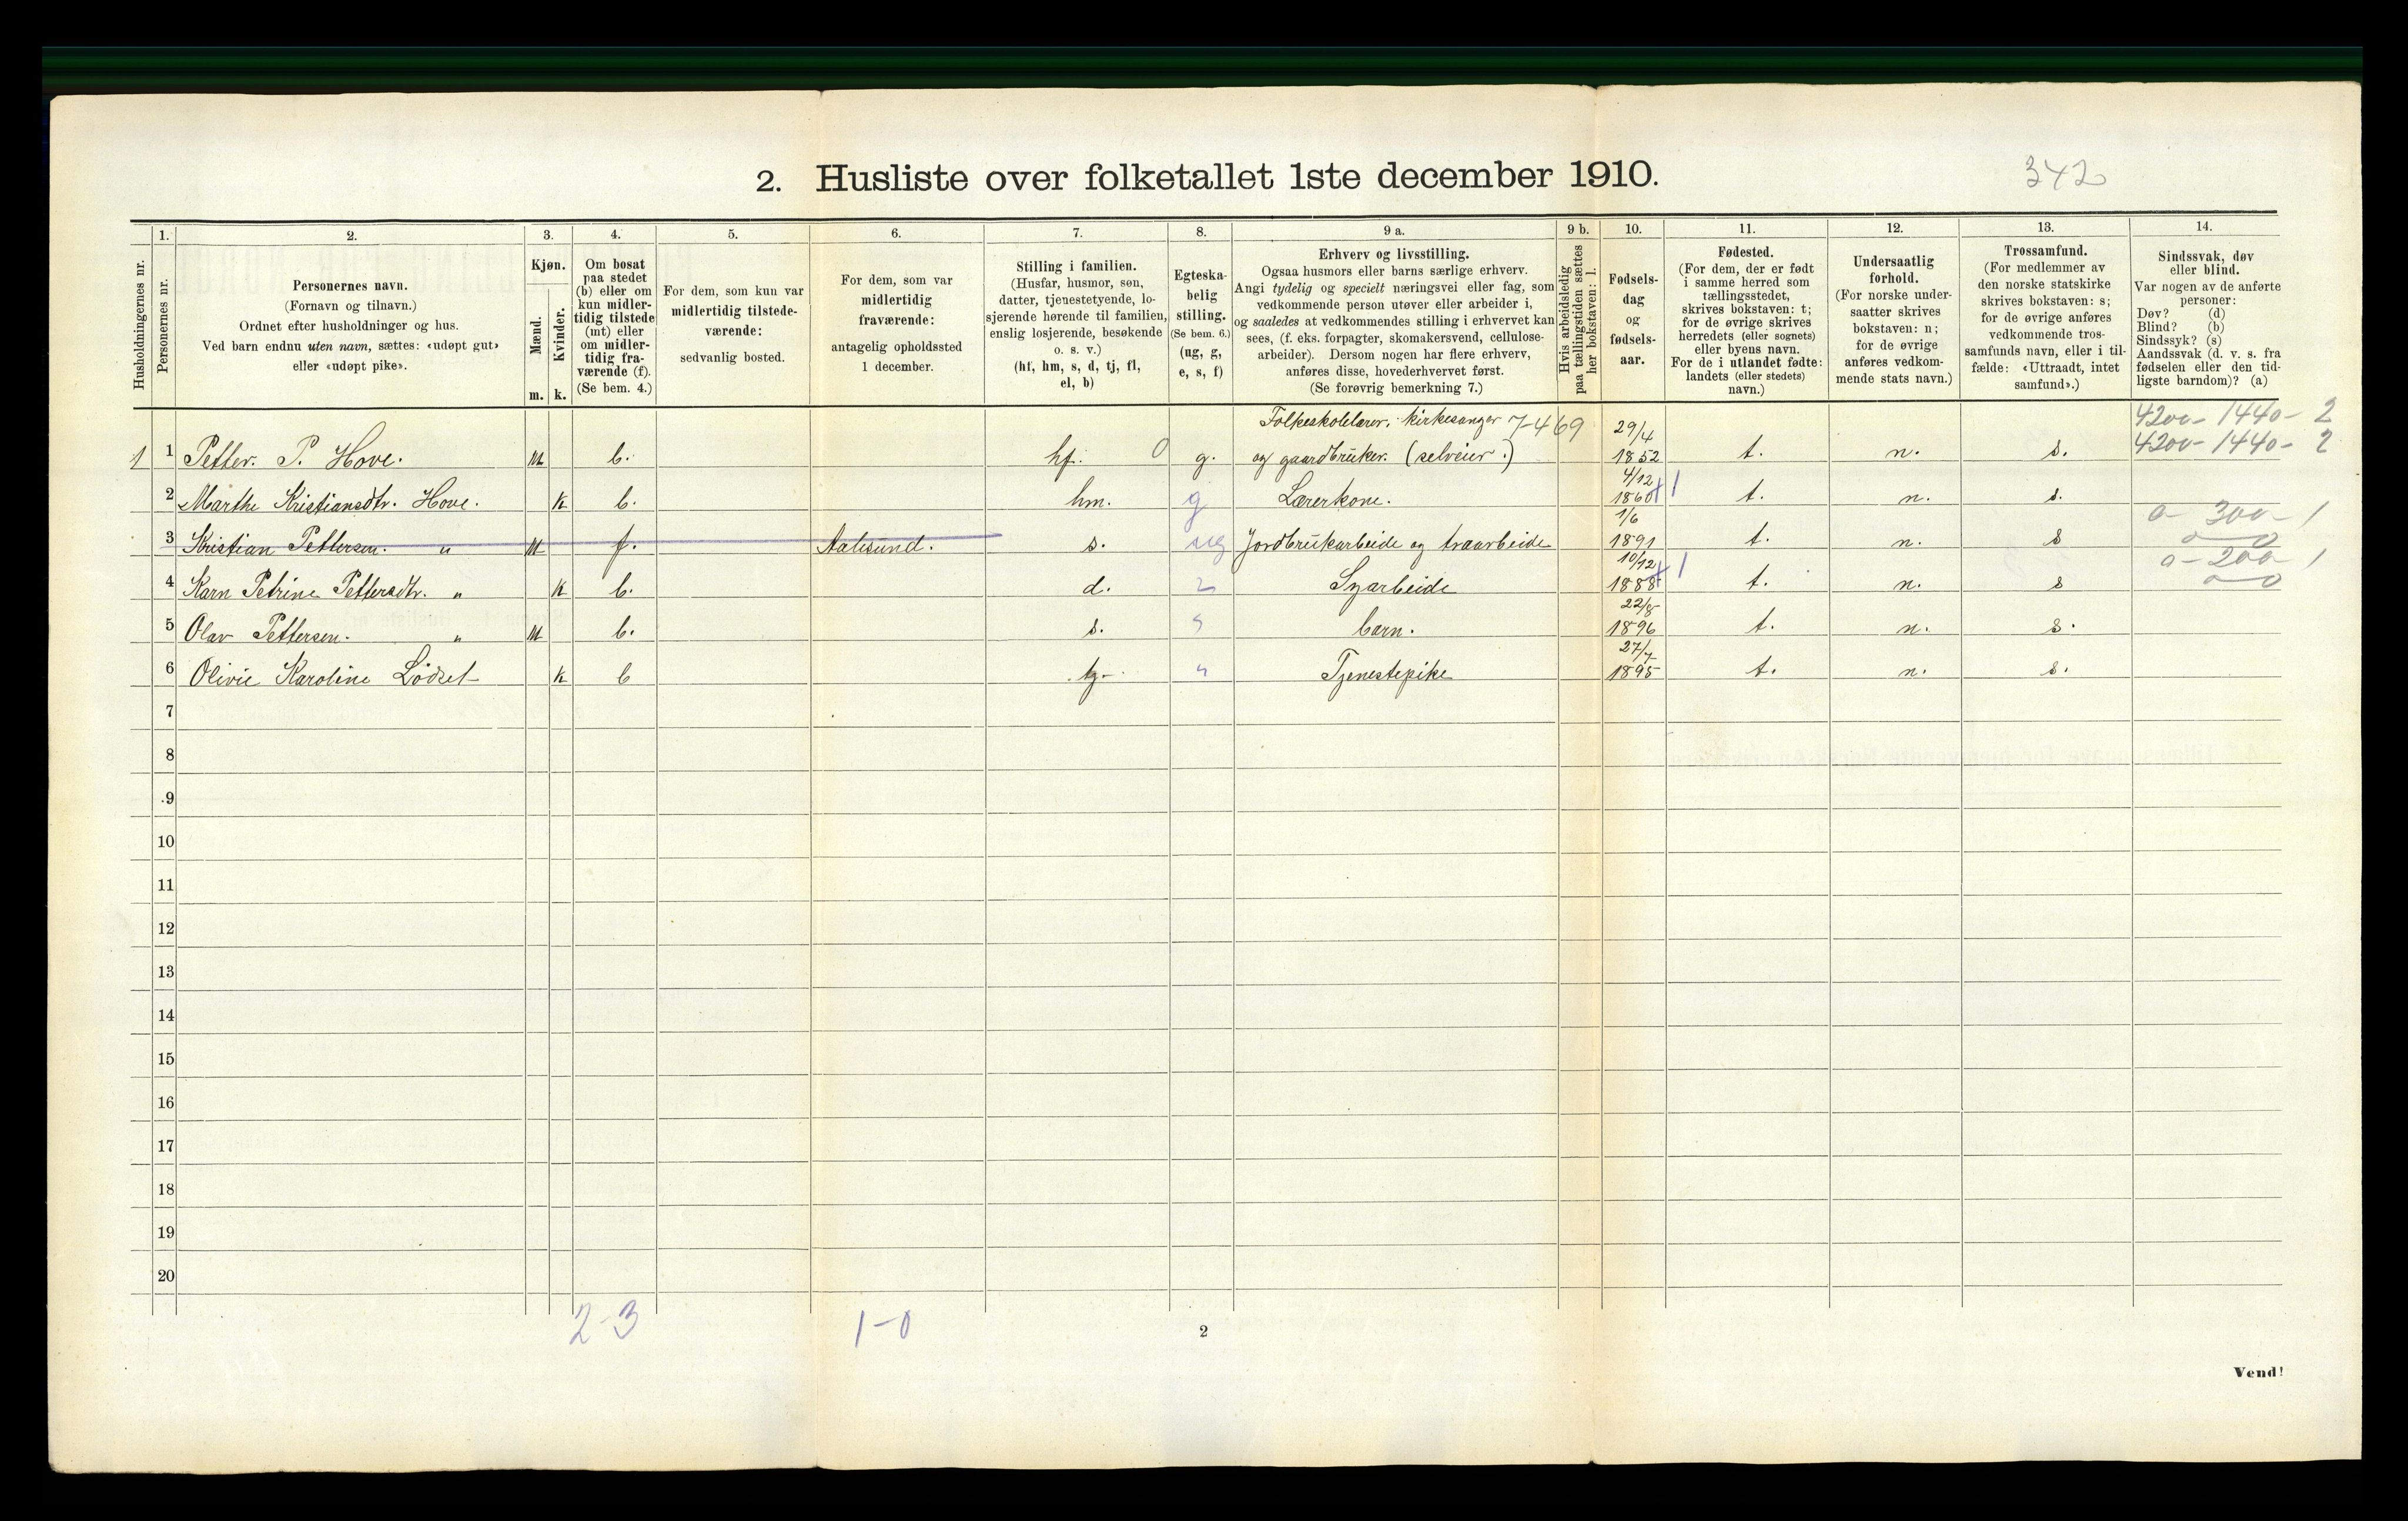 2. Husliste over folketallet 1ste december 1910.
342
1. 2. 3. 4. 5. 6. 7. 8. 9 a. 9 b. 10. 11. 12. 13. 14.
Husholdningernes nr.
Personernes nr.
Personernes navn.
(Fornavn og tilnavn.)
Ordnet efter husholdninger og hus.
Ved barn endnu uten navn, sættes: «udøpt gut»
eller «udøpt pike».
Kjøn.
Mænd.
Kvinder.
m. k.
Om bosat
paa stedet
(b) eller om
kun midler-
tidig tilstede
(mt) eller
om midler-
tidig fra-
værende (f).
(Se bem. 4.)
For dem, som kun var
midlertidig tilstede-
værende:
sedvanlig bosted.
For dem, som var
midlertidig
fraværende:
antagelig opholdssted
1 december.
Stilling i familien.
(Husfar, husmor, søn,
datter, tjenestetyende, lo-
sjerende hørende til familien,
enslig losjerende, besøkende
o. s. v.)
(hf, hm, s, d, tj, fl,
el, b)
Egteska-
belig
stilling.
(Se bem. 6.)
(ug, g,
e, s, f)
Erhverv og livsstilling.
Ogsaa husmors eller barns særlige erhverv.
Angi tydelig og specielt næringsvei eller fag, som
vedkommende person utøver eller arbeider i,
og saaledes at vedkommendes stilling i erhvervet kan
sees, (f. eks. forpagter, skomakersvend, cellulose-
arbeider). Dersom nogen har flere erhverv,
anføres disse, hovederhvervet først.
(Se forøvrig bemerkning 7.)
Hvis arbeidsledig
paa tællingstiden sættes
her bokstaven: l.
Fødsels-
dag
og
fødsels-
aar.
Fødested.
(For dem, der er født
i samme herred som
tællingsstedet,
skrives bokstaven: t;
for de øvrige skrives
herredets (eller sognets)
eller byens navn.
For de i utlandet fødte:
landets (eller stedets)
navn.)
Undersaatlig
forhold.
(For norske under-
saatter skrives
bokstaven: n;
for de øvrige
anføres vedkom-
mende stats navn.)
Trossamfund.
(For medlemmer av
den norske statskirke
skrives bokstaven: s;
for de øvrige anføres
vedkommende tros-
samfunds navn, eller i til-
fælde: «Uttraadt, intet
samfund».)
Sindssvak, døv
eller blind.
Var nogen av de anførte
personer:
Døv? (d)
Blind? (b)
Sindssyk? (s)
Aandssvak (d. v. s. fra
fødselen eller den tid-
ligste barndom)? (a)
Folkeskolelærer, kirkesanger 7-469 29/4 4200- 1440- 2
1 1 Petter. P. Hove. M b. hf. 0 g. og gaardbruker. (selveier.) 1852 t. n. s. 4200- 1440- 2
4/12
2 Marthe Kristiansdtr. Hove. K b. hm. g Lærerkone. 1860 1 t. n. s.
1/6 0- 300- 1
3 Kristian Pettersen. " M f. Aalesund. s. ug Jordbrukarbeide og træarbeide 1891 t. n. s 0-0
10/12 0-200 1
4 Karn Petrine Pettersdtr. " K b. d. Syarbeide 1888 1 t. n. s 0-0
22/8
5 Olav Pettersen. " M b. s. barn. 1896 t. n. s.
27/7
6 Olivie Karoline Lødset K b tj. Tjenestepike 1895 t. n. s.
7
8
9
10
11
12
13
14
15
16
17
18
19
20
2-3 1-0
2
Vend!